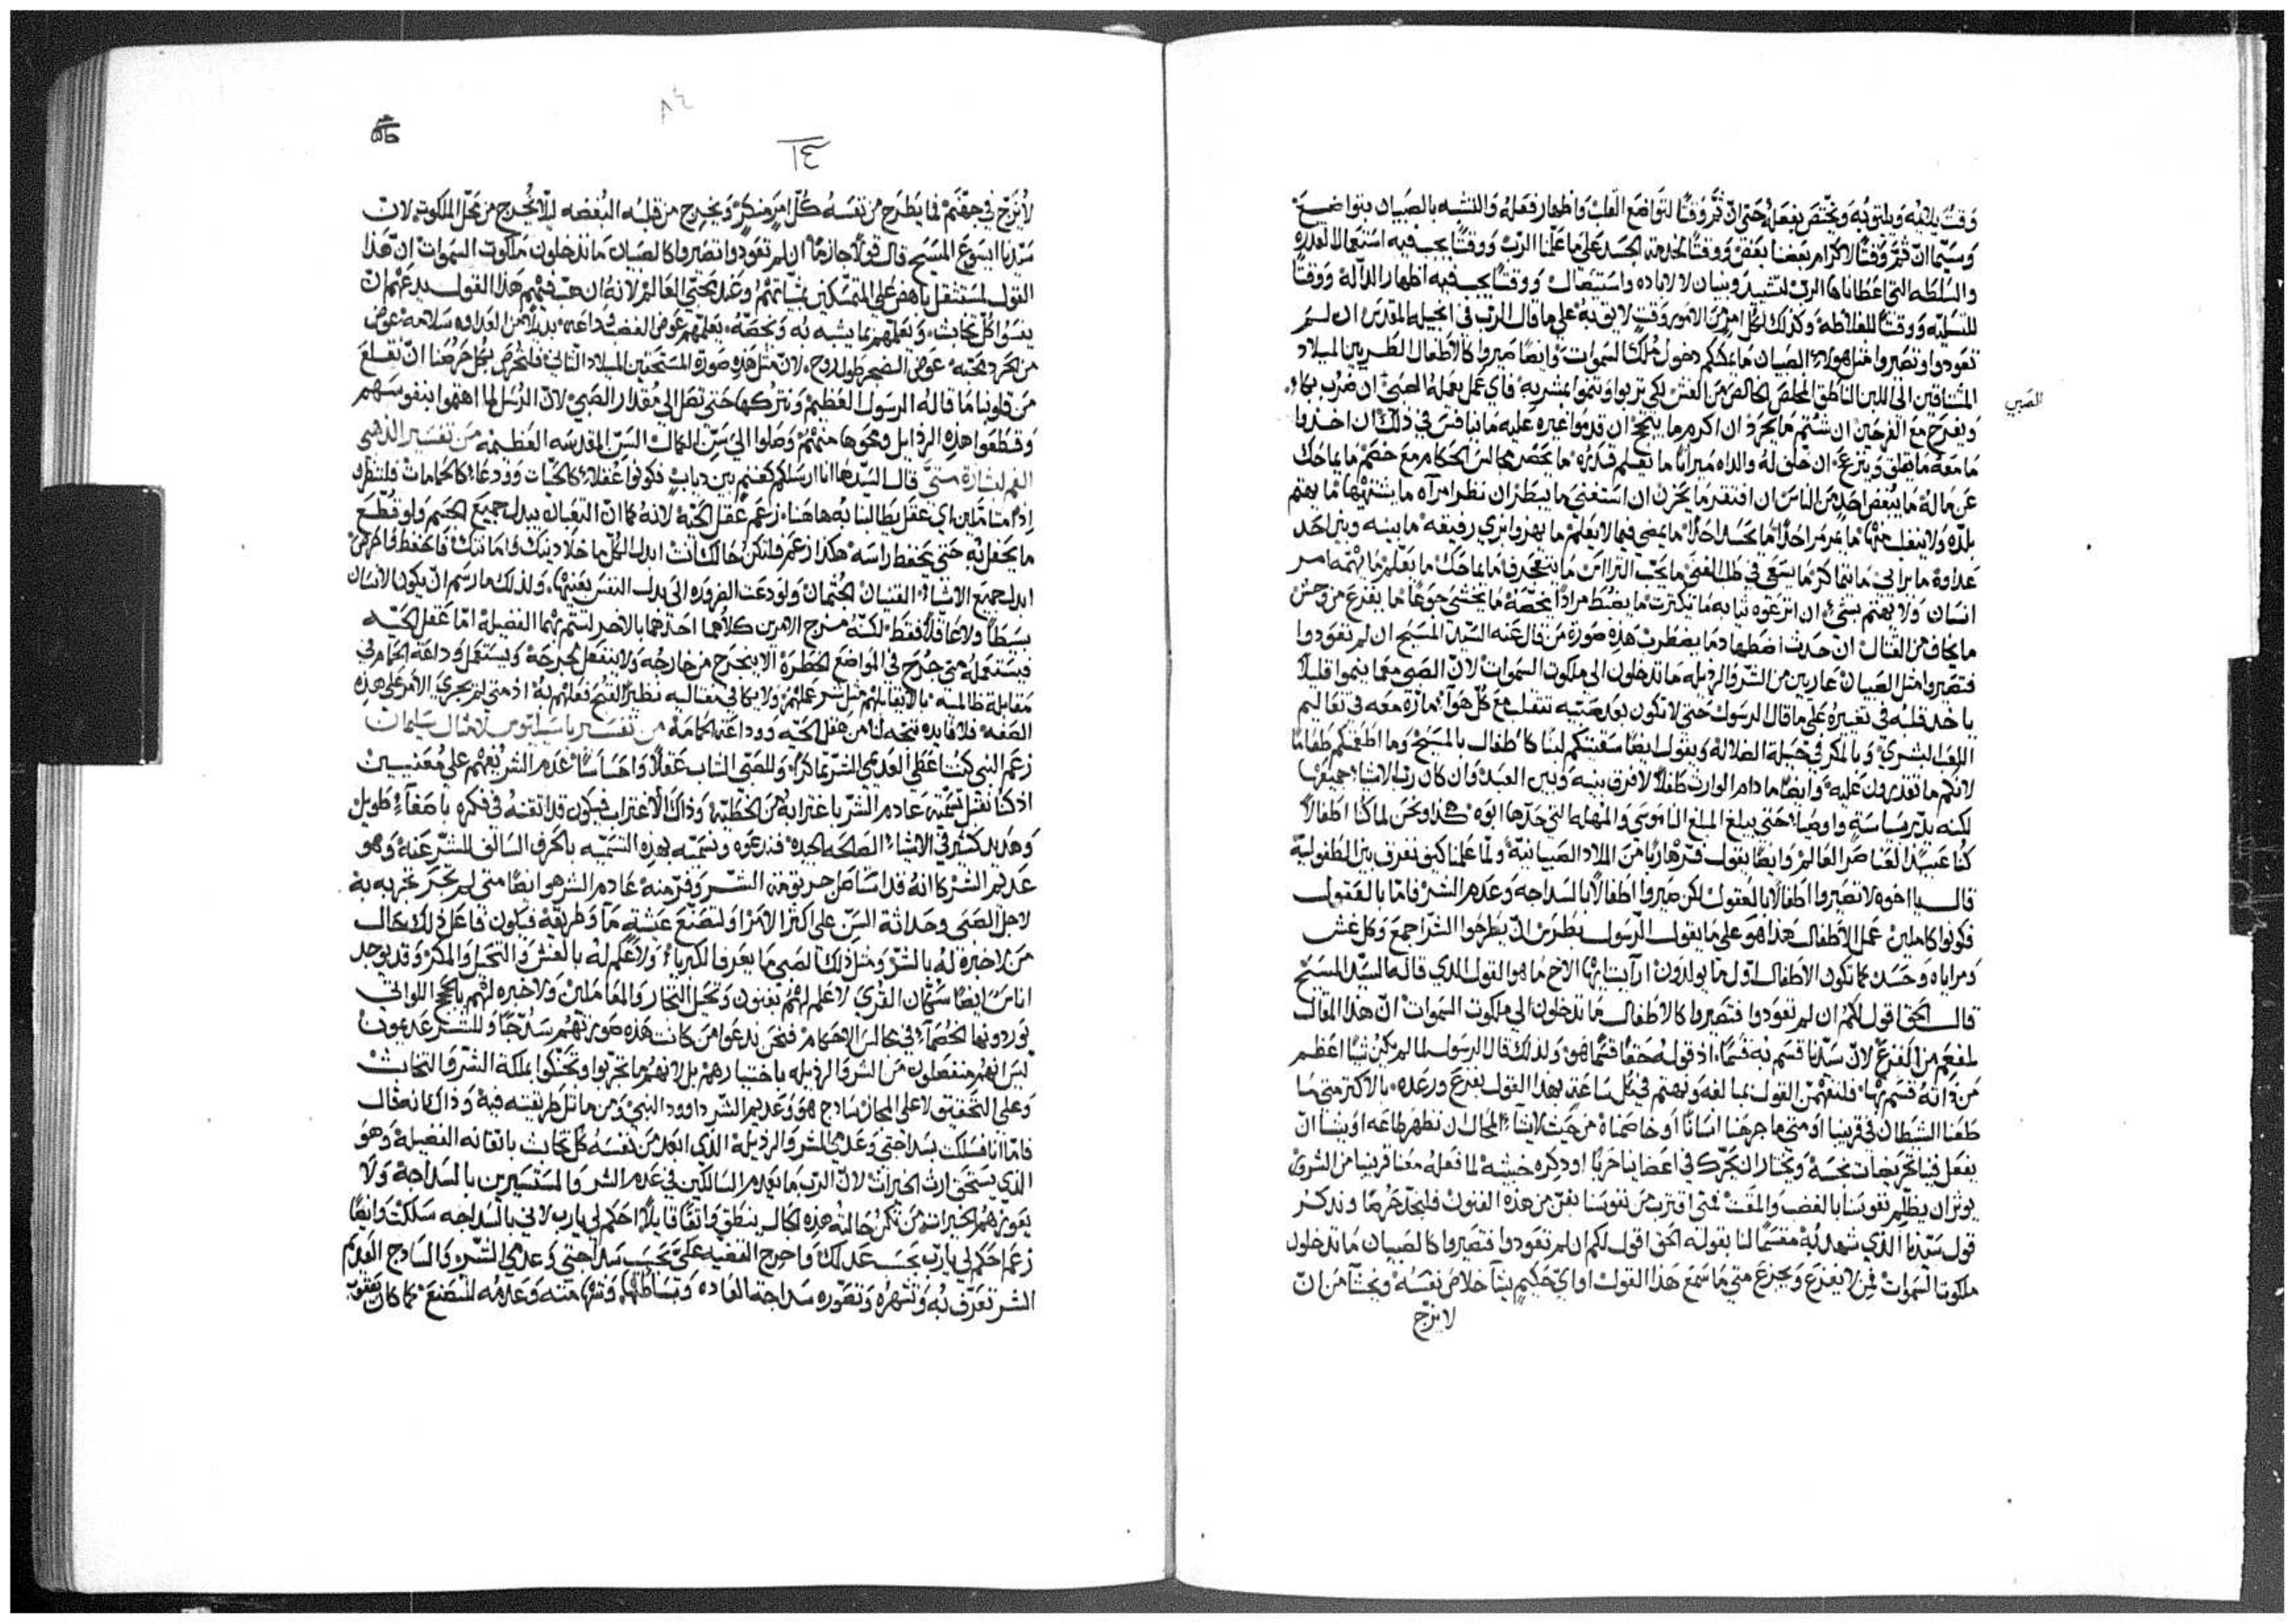 وقتٌ يليقبه ويلتوبه ويختص بفعله حتى انّ ثمّ وقتًا لتواضع القلب واظهار فعله والتشبه بالصبيان بتواضع
وسيّما انّ ثمّ وقتًا لاكرام بعضنا بعض ووقتًا لخدمة الجسد على ما علّمنا الربّ ووقتًا يجب فيه استعمالا لقدره
والسلطه التي اعطاناها الربّ لتشييد وبنيان لا لاباده واستيصال ووقتًا يجب فيه اظهار الدالّه ووقتًا
للتسليه ووقتًا للغلاظه وكذلك لكل امرٍ من الامور وقت لايق به على ما قال الرب في انجيله المقدس ان لم
تعودوا وتصيروا مثل هولاء الصبيان ما يمكنكم دخول ملك السموات وايضًا صيروا كالأطفال الطريين الميلاد
المشتاقين الى اللبن الناطق المخلص الخالص من الغش لكي تربوا وتنموا بشربه فاي عمل يعمله الصبي ان ضُرب بكاء
الصبي
ويفرح مع الفرحين ان شُتم ما يحرد ان اكرم ما يبتجح ان قدموا غيره عليه ما ينافس في ذلك ان اخدوا
ما معه ما يقلق وينزعج ان خلف له والداه ميراثًا ما يعلم قدره ما يحضر مجالس الحكام مع خصم ما يماحك
عن ماله ما يبغض احد من الناس ان افتقر ما يحزن ان استغنى ما يبطر ان نظر امراه ما يشتهيها ما يهتم
بلدّه ولا ينفعل منها ما يمرمر احدًا ما يحسد احدًا ما يمضي فيما لا يعلم ما يهزوا بزي رفيقه ما بينه وبين احد
عداوة ما يراني ما يتماكر ما يسعى في طلب الغنى ما يحب التراس ما يتعجرف ما يماحك ما يعلم ما يهتمه امر
انسان ولا يهتم بشي ان انزعوه ثيابه ما يكترث ما يضبط مرادًا يخصّه ما يخشى جوعًا ما يفزع من وحش
ما يخاف من القتال ان حدث اضطهاد ما يضطرب هذه صورة من قال عنه السيّد المسيح ان لم تعودوا
فتصيروا مثل الصبيان عاريين من الشر والرذيله ما تدخلون الى ملكوت السموات لان الصبي معما ينموا قليلًا
ياخد قلبه في تغييره على ما قال الرسول حتى لا نكون بعد صبيه تتقلب مع كل هواء مارّة معه في تعاليم
اللعب البشري وبالمكر في حيلة الضلالة ويقول ايضًا سقيتكم لبنًا كاطفال بالمسيح وما اطعمتكم طعامًا
لانكم ما تقدرون عليه وايضًا ما دام الوارث طفلًا لا فرق بينه وبين العبد وان كان رب الاشياء جميعها
لكنه يدبّر بساسة واوصياء حتى يبلغ المبلغ الناموسي والمهله التي حدّها ابوه هكذا ونحن لما كنا اطفالًا
كنا عبيدًا لعناصر العالم وايضًا يقول فرّ هاربًا من الميلاد الصبيانيّة ولمّا علمنا كيف نفرق بين الطفوليه
قال يا اخوه لا تصيروا اطفالًا بالعقول لكن صيروا اطفالًا بالسداجه وعدم الشر فامّا بالعقول
فكونوا كاملين عمل الاطفال هذا هو على ما يقول الرسول بطرس ان يطرحوا الشر اجمع وكل غش
ومراياه وحسد كما تكون الاطفال اول ما يولدون ارايت ايها الاخ ما هو القول الذي قاله السيّد المسيح
قال الحق اقول لكم ان لم تعودوا فتصيروا كالاطفال ما تدخلون الى ملكوت السموات ان هذا المقال
لمفعم من الفزع لانّ سيّدنا قسم به قسمًا اذ قوله حقًا قسمًا هو ولذلك قال الرسول لما لم يكن شيًا اعظم
من ذاته قسم بها فلنتفهمّن القول بمبالغه ونهتم في كل ساعةٍ بهذا القول بفزع ورعده بالاكثر متى ما
طعننا الشيطان في قريبنا او متى ما جرحنا انسانًا او خاصمناه من حيث لايشاء المحال ان نظهر طاعه او يشا ان
يفعل فينا تحريضات نجسة ويختار ان يحرّك في اعضاينا حربًا او ذكره خبيثه لما فعله معنا قريبنا من الشر وي
يوثر ان يظلم نفوسنا بالغضب والمقت فمتى اقترب من نفوسنا بفن من هذه الفنون فلنجدّ خرهما ونذكر
قول سيّدنا الذي شهد به مقسمًا لنا بقوله الحق اقول لكم ان لم تعودوا فتصيروا كالصبيان ما تدخلون
ملكوت السموات فمن لا يفزع ويجزع متى ما سمع هذا القول او ايّ حكيم يشا خلاص نفسه ويخشا من انّ
لا نزجّ
٨٤
١٤
لا نُزجّ في جهنم فما يطرح من نفسه كلّ امرٍ منكرٍ ويخرج من قلبه البُغضه ليلّا يُخرج من محلّ الملكوت لانّ
سيّدنا ايسوع المسيح قال قولًا جازمًا ان لم تعودوا وتصيروا كالصبيان ما تدخلون ملكوت السموات انّ هذا
القول لمستثقل باهض على المتمسكين بشياتهم وعند محبّي العالم لانه ان هبّ فيهم هذا القول يدعهم ان
ينسوا كلّ تخابث ويعلّمهم بما يشبه به ويخصّه يعلّمهم عوض الغضب وداعه بدلًا من العداوه سلامه عوض
من الحرد محبّة عوض الضجر طول روح لان مثل هذه صورة المستحقين الميلاد الثاني فلنحرص بكل حرصنا ان نقلع
من قلوبنا ما قاله الرسول العظيم ونتركها حتى نصل الى مقدار الصبي لان الرُسل لما اهتموا بنفوسهم
وقطعوا هذه الرذايل ومحوها منهم وصلوا الى سن الكمال السن المقدسه العظيمه من تفسير الذهبي
الفم لبشارة متى قال السيّد ها انا ارسلكم كغنم بين دياب فكونوا عقلاء كالحيّات وودعاء كالحمامات فلننظر
اذًا متاملين اي عقل يطالبنا به هاهنا زعم عقل الحيّة لانه كما انّ الثعبان يبدل جميع الجسم ولو قُطّع
ما يحفل به حتى يحفظ راسه هكذا زعم فلتكن حالك انت ابدل الكلّ ما خلا دينك وامانتك فاحفظ فاحرص
ابدل جميع الاشياء القنيان الجثمان ولو دعت الضروره الى بدل النفس بعينها ولذلك ما رسم ان يكون الانسان
بسيطًا ولا عاقلًا فقط لكنّه مزج الامرين كلاهما احدهما بالاخر لتتم بهما الفضيلة امّا عقل الحيّه
فيستعمله متى جُرح في المواضع الخطرة الا ينجرح من خارجه ولا ينفعل لجرحه ويستعمل وداعة الحمام في
مقابلة ظالميه بالا يقابلهم مثل شر عملهم ولا يكافي مغتاليه نظير القبيح فعلهم به اذ متى لم يجري الامر على هذه
الصفه فلا فايده تتجه لنا من عقل الحيّه ووداعة الحمامة من تفسير باسيليوس لامثال سليمان
زعم النبي كيتا عطي العديمي الشر تماكرًا وللصبي الشاب عقلًا واحساسًا عدم الشر يُفهم على معنيين
اذ كنا نقبل تسمية عادم الشر باغترابه من الخطيّة وذاك الاغتراب فيكون قد اتقنه في فكره باصغاءٍ طويل
وهديد كثير في الاشياء الصالحه الجيده فندعوه ونسمّيه بهذه التسميه بالحرف السالف للشر عنه وهو
عديم الشر كانه قد استاصل جريثومة الشر وقرمنه عادم الشر هو ايضًا متى لم يخبر تجربه به
لاجل الصبى وحداثة السن على اكثر الامر او لتصنّع عيشةٍ ما وطريقة فيكون فاعل ذلك بحال
من لا خبرة له بالشر ومثل ذلك الصبي ما يعرف الكبرياء ولا علم له بالغش والتحيل والمكر وقد يوجد
اناس ايضًا سكّان القرى لا علم لهم بغبون وتحيل التجار والمعاملين ولا خبره لهم بالحجج اللواتي
يوردونها الخصماء في مجالس الاحكام فنحن ندعوا من كانت هذه صورتهم سُدّجًا وللشر عديمون
ليس انهم منفصلون من الشر والرذيله باختيارهم بل لانهم ما تجرّبوا وتحنّكوا بملكة الشر والتخابث
وعلى التحقيق لا على المجاز سادج هو وعديم الشر داوود النبي ومن ماثل طريقته فيه وذاك انه قال
فامّا انا فسلكت بسداجتي وعديمي للشر والرذيلة الذي ابعد من نفسه كل تخابث باتقانه الفضيلة وهو
الذي يستحق ارث الخيرات لان الرب ما يعدم السالكين في عدم الشر والمستسيرين بالسداجة ولا
يعوزهم الخيرات من تكن حالته هذه الحال ينطق واثقًا قايلًا احكم لي يارب لاني بالسداجه سلكت وايضًا
زعم احكم لي يارب بحسب عدلك واخرج القضيه عليّ بحسب سداجتي وعدمي الشر والسادج العديم
الشر تعرّف به وتشهره وتصوره سداجة العاده وبساطتها وشهامته وعدمه للتصنع كما كان يعقوب